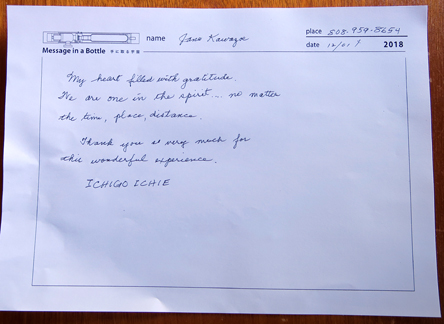 name Jane Kawazoe
place 808-959-8654
Message in a Bottle
date 12/01/ 2018
My heart filled with gratitude.
We are one in the spirit.... no matter
the time, place, distance.
Thank you so very much for
this wonderful experience.
ICHIGO ICHIE